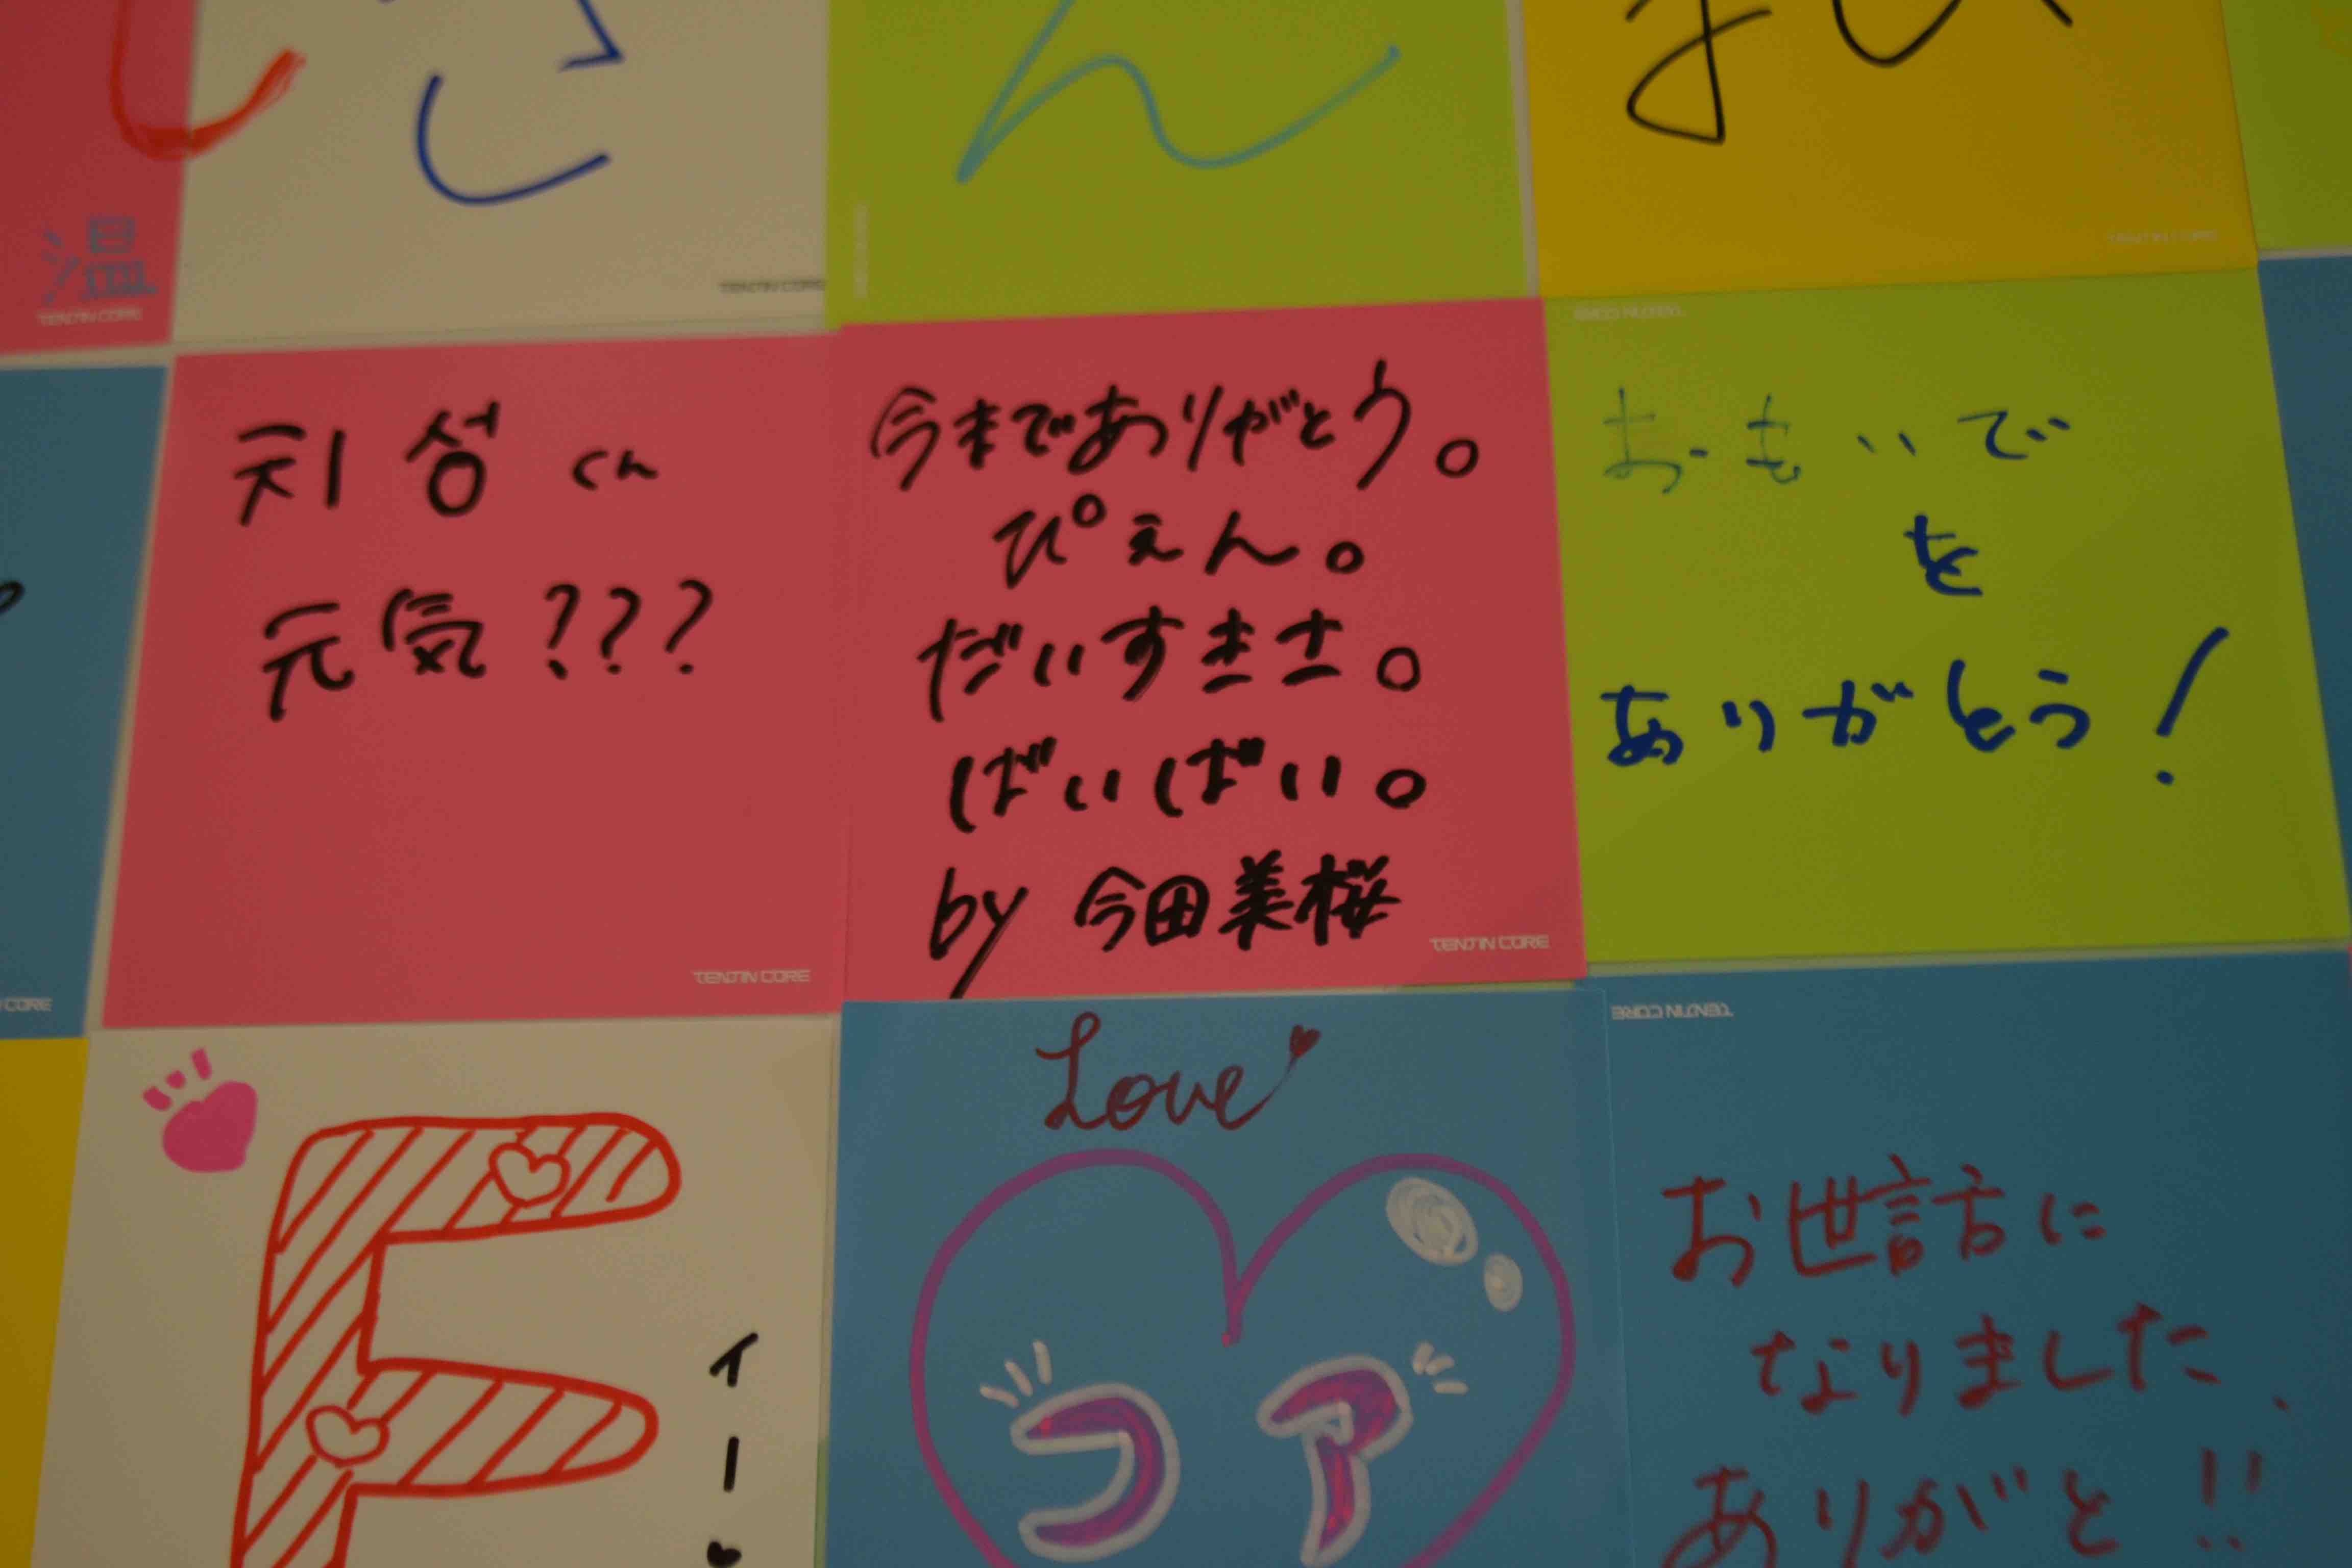 温
TENJIN CORE
TENJIN CORE
ん
TENJIN CORE
TENJIN CORE
CORE
지성くん
元気???
TENJIN CORE
今までありがとう。
ぴえん。
だいすきさ。
ばいばい。
by 今田美桜
TENJIN CORE
おもいで
を
ありがとう!
E
イー
Love
コア
TENJIN CORE
お世話に
なりました、
ありがと!!